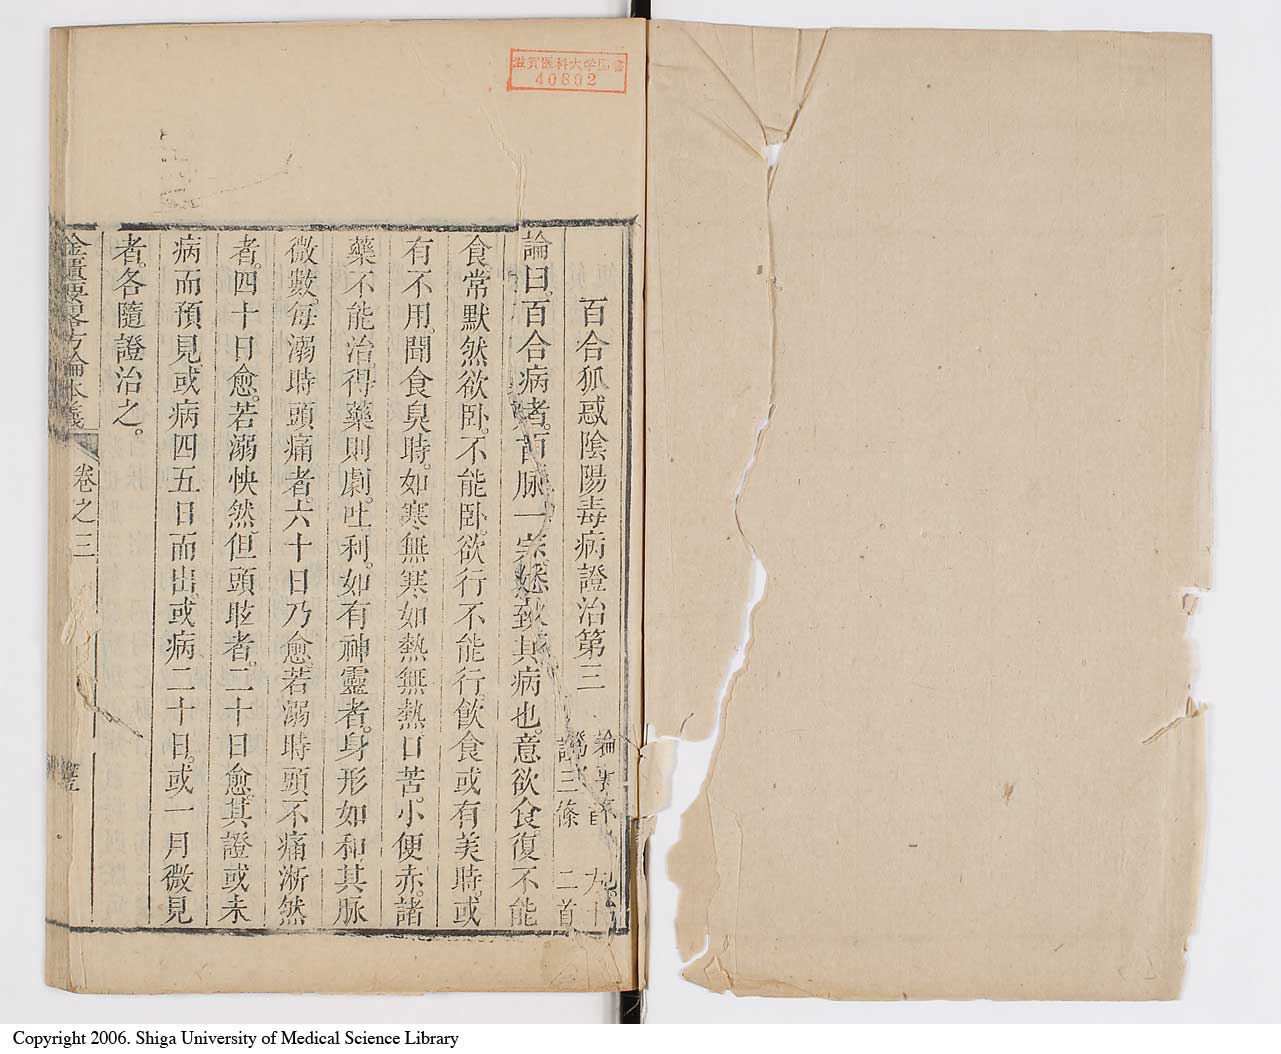 滋賀医科大学図書
40802
百合狐惑陰陽毒病證治第三
論一首
證三條
方十
二首
論曰。百合病者。百脉一宗。悉致其病也。意欲食。復不能
食。常默然。欲卧。不能卧。欲行不能行。飲食或有美時。或
有不用。聞食臭時。如寒無寒。如熱無熱。口苦。小便赤。諸
藥不能治。得藥則劇。吐利。如有神靈者。身形如和。其脉
微數。每溺時頭痛者。六十日乃愈。若溺時頭不痛淅然
者。四十日愈。若溺快然。但頭眩者。二十日愈。其證或未
病而預見。或病四五日而出。或病二十日。或一月微見
者。各隨證治之。
金匱要略方論本義
卷之三
Copyright 2006. Shiga University of Medical Science Library